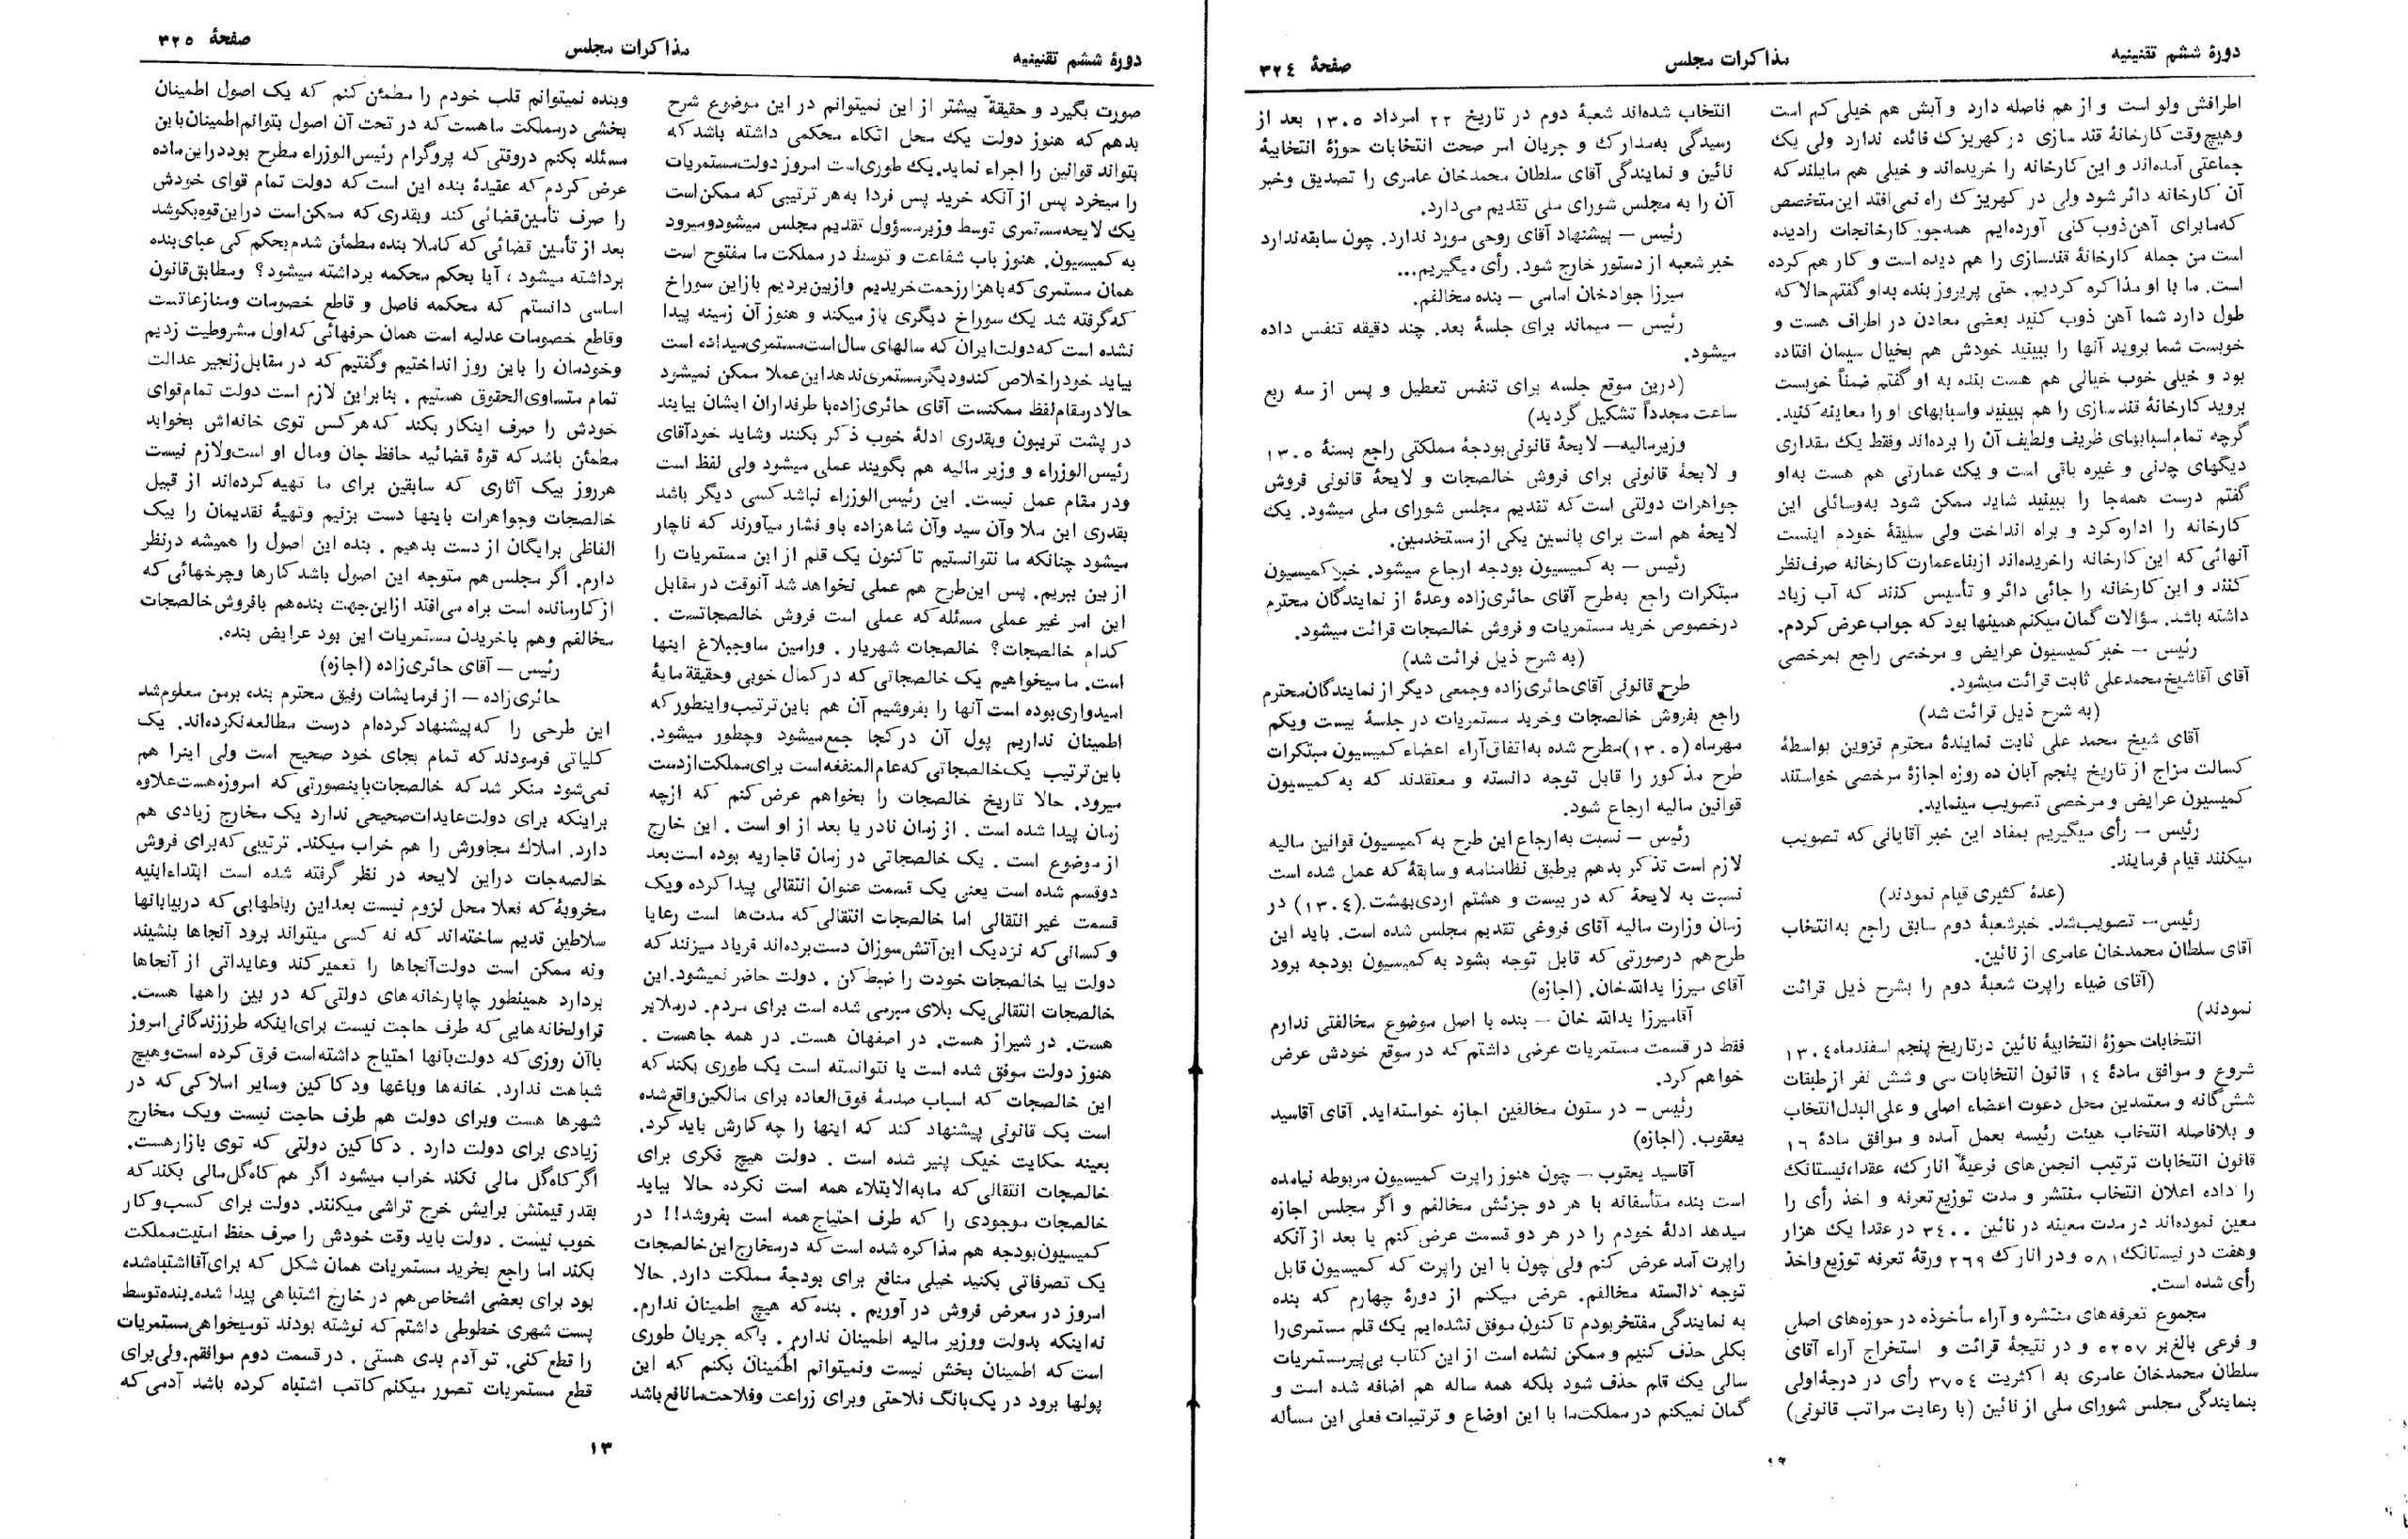 دورهٔ ششم تقنینیه
مذاکرات مجلس
صفحهٔ ۳۲۴
اطرافش ولو است و از هم فاصله دارد و آبش هم خیلی کم است
وهیچوقت کارخانهٔ قند سازی در کهریزک فائده ندارد ولی یک
جماعتی آمده‌اند و این کارخانه را خریده‌اند و خیلی هم مایلند که
آن کارخانه دائر شود ولی در کهریزک راه نمی‌افتد این متخصص
که ما برای آهن ذوب کنی آورده‌ایم همه‌جور کارخانجات را دیده
است من جمله کارخانهٔ قندسازی را هم دیده است و کار هم کرده
است. ما با او مذاکره کردیم. حتی پریروز بنده به‌او گفتم حالا که
طول دارد شما آهن ذوب کنید بعضی معادن در اطراف هست و
خوبست شما بروید آنها را ببینید خودش هم بخیال سیمان افتاده
بود و خیلی خوب خیالی هم هست بنده به او گفتم ضمناً خوبست
بروید کارخانهٔ قندسازی را هم ببینید واسبابهای او را معاینه کنید.
گرچه تمام اسبابهای ظریف ولطیف آن را برده‌اند وفقط یک مقداری
دیگهای چدنی و غیره باقی است و یک عمارتی هم هست به‌او
گفتم درست همه‌جا را ببینید شاید ممکن شود به‌وسائلی این
کارخانه را اداره کرد و براه انداخت ولی سلیقهٔ خودم اینست
آنهائی که این کارخانه را خریده‌اند از بناء عمارت کارخانه صرف‌نظر
کنند و این کارخانه را جائی دائر و تأسیس کنند که آب زیاد
داشته باشد. سؤالات گمان میکنم همینها بود که جواب عرض کردم.
رئیس — خبر کمیسیون عرایض و مرخصی راجع بمرخصی
آقای آقاشیخ محمدعلی ثابت قرائت میشود.
(به شرح ذیل قرائت شد)
آقای شیخ محمد علی ثابت نمایندهٔ محترم قزوین بواسطهٔ
کسالت مزاج از تاریخ پنجم آبان ده روزه اجازهٔ مرخصی خواستند
کمیسیون عرایض و مرخصی تصویب مینماید.
رئیس — رأی میگیریم بمفاد این خبر آقایانی که تصویب
میکنند قیام فرمایند.
(عدهٔ کثیری قیام نمودند)
رئیس— تصویب‌شد. خبرشعبهٔ دوم سابق راجع به‌انتخاب
آقای سلطان محمدخان عامری از نائین.
(آقای ضیاء راپرت شعبهٔ دوم را بشرح ذیل قرائت
نمودند)
انتخابات حوزهٔ انتخابیهٔ نائین درتاریخ پنجم اسفندماه ۱۳۰۴
شروع و موافق مادهٔ ۱۴ قانون انتخابات سی و شش نفر از طبقات
شش‌گانه و معتمدین محل دعوت اعضاء اصلی و علی‌البدل انتخاب
و بلافاصله انتخاب هیئت رئیسه بعمل آمده و موافق مادهٔ ۱۶
قانون انتخابات ترتیب انجمن‌های فرعیهٔ انارک، عقدا، نیستانک
را داده اعلان انتخاب منتشر و مدت توزیع تعرفه و اخذ رأی را
معین نموده‌اند در مدت معینه در نائین ۳۴۰۰ در عقدا یک هزار
وهفت در نیستانک ۵۸۱ ودر انارک ۲۶۹ ورقهٔ تعرفه توزیع واخذ
رأی شده است.
مجموع تعرفه‌های منتشره و آراء مأخوذه در حوزه‌های اصلی
و فرعی بالغ بر ۵۲۵۷ و در نتیجهٔ قرائت و استخراج آراء آقای
سلطان محمدخان عامری به اکثریت ۳۷۵۴ رأی در درجهٔ اولی
بنمایندگی مجلس شورای ملی از نائین (با رعایت مراتب قانونی)
انتخاب شده‌اند شعبهٔ دوم در تاریخ ۲۲ امرداد ۱۳۰۵ بعد از
رسیدگی به‌مدارک و جریان امر صحت انتخابات حوزهٔ انتخابیهٔ
نائین و نمایندگی آقای سلطان محمدخان عامری را تصدیق وخبر
آن را به مجلس شورای ملی تقدیم می‌دارد.
رئیس — پیشنهاد آقای روحی مورد ندارد. چون سابقه‌ندارد
خبر شعبه از دستور خارج شود. رأی میگیریم...
میرزا جوادخان امامی — بنده مخالفم.
رئیس — میماند برای جلسهٔ بعد. چند دقیقه تنفس داده
میشود.
(درین موقع جلسه برای تنفس تعطیل و پس از سه ربع
ساعت مجدداً تشکیل گردید)
وزیرمالیه— لایحهٔ قانونی بودجهٔ مملکتی راجع بسنهٔ ۱۳۰۵
و لایحهٔ قانونی برای فروش خالصجات و لایحهٔ قانونی فروش
جواهرات دولتی است که تقدیم مجلس شورای ملی میشود. یک
لایحهٔ هم است برای پانسین یکی از مستخدمین.
رئیس — به کمیسیون بودجه ارجاع میشود. خبر کمیسیون
مبتکرات راجع به‌طرح آقای حائری‌زاده وعدهٔ از نمایندگان محترم
درخصوص خرید مستمریات و فروش خالصجات قرائت میشود.
(به شرح ذیل قرائت شد)
طرح قانونی آقای حائری‌زاده وجمعی دیگر از نمایندگان محترم
راجع بفروش خالصجات وخرید مستمریات در جلسهٔ بیست ویکم
مهرماه (۱۳۰۵) مطرح شده به‌اتفاق آراء اعضاء کمیسیون مبتکرات
طرح مذکور را قابل توجه دانسته و معتقدند که به کمیسیون
قوانین مالیه ارجاع شود.
رئیس — نسبت به‌ارجاع این طرح به کمیسیون قوانین مالیه
لازم است تذکر بدهم برطبق نظامنامه و سابقهٔ که عمل شده است
نسبت به لایحهٔ که در بیست و هشتم اردی‌بهشت (۱۳۰۴) در
زمان وزارت مالیه آقای فروغی تقدیم مجلس شده است. باید این
طرح هم درصورتی که قابل توجه بشود به کمیسیون بودجه برود
آقای میرزا یدالله‌خان. (اجازه)
آقامیرزا یدالله خان — بنده با اصل موضوع مخالفتی ندارم
فقط در قسمت مستمریات عرضی داشتم که در موقع خودش عرض
خواهم کرد.
رئیس – در ستون مخالفین اجازه خواسته‌اید. آقای آقاسید
یعقوب. (اجازه)
آقاسید یعقوب — چون هنوز راپرت کمیسیون مربوطه نیامده
است بنده متأسفانه با هر دو جزئش مخالفم و اگر مجلس اجازه
میدهد ادلهٔ خودم را در هر دو قسمت عرض کنم یا بعد از آنکه
راپرت آمد عرض کنم ولی چون با این راپرت که کمیسیون قابل
توجه دانسته مخالفم. عرض میکنم از دورهٔ چهارم که بنده
به نمایندگی مفتخربودم تا کنون موفق نشده‌ایم یک قلم مستمری را
بکلی حذف کنیم و ممکن نشده است از این کتاب بی‌پیرمستمریات
سالی یک قلم حذف شود بلکه همه ساله هم اضافه شده است و
گمان نمیکنم در مملکت‌ما با این اوضاع و ترتیبات فعلی این مسأله
۱۲
دورهٔ ششم تقنینیه
مذاکرات مجلس
صفحهٔ ۳۲۵
صورت بگیرد و حقیقةً بیشتر از این نمیتوانم در این موضوع شرح
بدهم که هنوز دولت یک محل اتکاء محکمی داشته باشد که
بتواند قوانین را اجراء نماید. یک طوری‌است امروز دولت‌مستمریات
را میخرد پس از آنکه خرید پس فردا به هر ترتیبی که ممکن است
یک لایحه مستمری توسط وزیرمسؤول تقدیم مجلس میشود ومیرود
به کمیسیون. هنوز باب شفاعت و توسط در مملکت ما مفتوح است
همان مستمری که باهزار زحمت خریدیم وازبین بردیم بازاین سوراخ
که گرفته شد یک سوراخ دیگری باز میکند و هنوز آن زمینه پیدا
نشده است که دولت ایران که سالهای سال است مستمری میداده است
بیاید خود را خلاص کند و دیگر مستمری ندهد این عملا ممکن نمیشود
حالا درمقام لفظ ممکنست آقای حائری‌زاده با طرفداران ایشان بیایند
در پشت تریبون وبقدری ادلهٔ خوب ذکر بکنند وشاید خودآقای
رئیس‌الوزراء و وزیر مالیه هم بگویند عملی میشود ولی لفظ است
ودر مقام عمل نیست. این رئیس‌الوزراء نباشد کسی دیگر باشد
بقدری این ملا وآن سید وآن شاهزاده باو فشار میآورند که ناچار
میشود چنانکه ما نتوانستیم تا کنون یک قلم از این مستمریات را
از بین ببریم. پس این‌طرح هم عملی نخواهد شد آنوقت در مقابل
این امر غیر عملی مسئله که عملی است فروش خالصجاتست .
کدام خالصجات؟ خالصجات شهریار . ورامین ساوجبلاغ اینها
است. ما میخواهیم یک خالصجاتی که در کمال خوبی وحقیقة مایهٔ
امیدواری بوده است آنها را بفروشیم آن هم باین ترتیب و اینطور که
اطمینان نداریم پول آن در کجا جمع میشود وچطور میشود.
باین ترتیب یک خالصجاتی که عام‌المنفعه است برای مملکت از دست
میرود. حالا تاریخ خالصجات را بخواهم عرض کنم که ازچه
زمان پیدا شده است . از زمان نادر یا بعد از او است . این خارج
از موضوع است . یک خالصجاتی در زمان قاجاریه بوده است بعد
دوقسم شده است یعنی یک قسمت عنوان انتقالی پیدا کرده ویک
قسمت غیر انتقالی اما خالصجات انتقالی که مدت‌ها است رعایا
و کسانی که نزدیک این آتش سوزان دست برده‌اند فریاد میزنند که
دولت بیا خالصجات خودت را ضبط کن . دولت حاضر نمیشود. این
خالصجات انتقالی یک بلای مبرمی شده است برای مردم. درملایر
هست. در شیراز هست. در اصفهان هست. در همه جا هست .
هنوز دولت موفق شده است یا نتوانسته است یک طوری بکند که
این خالصجات که اسباب صدمهٔ فوق‌العاده برای مالکین واقع شده
است یک قانونی پیشنهاد کند که اینها را چه کارش باید کرد.
بعینه حکایت خیک پنیر شده است . دولت هیچ فکری برای
خالصجات انتقالی که مابه‌الابتلاء همه است نکرده حالا بیاید
خالصجات موجودی را که طرف احتیاج همه است بفروشد!! در
کمیسیون بودجه هم مذاکره شده است که درمخارج این خالصجات
یک تصرفاتی بکنید خیلی منافع برای بودجهٔ مملکت دارد. حالا
امروز در معرض فروش در آوریم . بنده که هیچ اطمینان ندارم.
نه اینکه بدولت ووزیر مالیه اطمینان ندارم . بلکه جریان طوری
است که اطمینان بخش نیست ونمیتوانم اطمینان بکنم که این
پولها برود در یک بانگ فلاحتی وبرای زراعت وفلاحت ما نافع باشد
وبنده نمیتوانم قلب خودم را مطمئن کنم که یک اصول اطمینان
بخشی درمملکت ماهست که در تحت آن اصول بتوانم اطمینان باین
مسئله بکنم دروقتی که پروگرام رئیس‌الوزراء مطرح بود دراین‌ماده
عرض کردم که عقیدهٔ بنده این است که دولت تمام قوای خودش
را صرف تأمین قضائی کند وبقدری که ممکن است دراین قوه بکوشد
بعد از تأمین قضائی که کاملا بنده مطمئن شدم بحکم کی عبای بنده
برداشته میشود ، آیا بحکم محکمه برداشته میشود؟ ومطابق قانون
اساسی دانستم که محکمه فاصل و قاطع خصومات ومنازعاتست
وقاطع خصومات عدلیه است همان حرفهائی که اول مشروطیت زدیم
وخودمان را باین روز انداختیم وگفتیم که در مقابل زنجیر عدالت
تمام متساوی‌الحقوق هستیم . بنابراین لازم است دولت تمام قوای
خودش را صرف اینکار بکند که هرکس توی خانه‌اش بخوابد
مطمئن باشد که قوهٔ قضائیه حافظ جان ومال او است ولازم نیست
هرروز بیک آثاری که سابقین برای ما تهیه کرده‌اند از قبیل
خالصجات وجواهرات باینها دست بزنیم وتهیهٔ نقدیمان را بیک
الفاظی برایگان از دست بدهیم . بنده این اصول را همیشه درنظر
دارم. اگر مجلس هم متوجه این اصول باشد کارها وچرخهائی که
از کارمانده است براه می‌افتد ازاین جهت بنده هم بافروش خالصجات
مخالفم وهم باخریدن مستمریات این بود عرایض بنده.
رئیس — آقای حائری‌زاده (اجازه)
حائری‌زاده — از فرمایشات رفیق محترم بنده برمن معلوم شد
این طرحی را که پیشنهاد کرده‌ام درست مطالعه نکرده‌اند. یک
کلیاتی فرمودند که تمام بجای خود صحیح است ولی اینرا هم
نمی‌شود منکر شد که خالصجات باینصورتی که امروزه هست علاوه
براینکه برای دولت عایدات صحیحی ندارد یک مخارج زیادی هم
دارد. املاک مجاورش را هم خراب میکند. ترتیبی که برای فروش
خالصه‌جات دراین لایحه در نظر گرفته شده است ابتداء ابنیه
مخروبهٔ که فعلا محل لزوم نیست بعد این رباطهایی که دربیابانها
سلاطین قدیم ساخته‌اند که نه کسی میتواند برود آنجاها بنشیند
ونه ممکن است دولت آنجاها را تعمیر کند وعایداتی از آنجاها
بردارد همینطور چاپارخانه‌های دولتی که در بین راهها هست.
قراولخانه‌هایی که طرف حاجت نیست برای اینکه طرز زندگانی امروز
باآن روزی که دولت بآنها احتیاج داشته است فرق کرده است وهیچ
شباهت ندارد. خانه‌ها وباغها ودکاکین وسایر املاکی که در
شهرها هست وبرای دولت هم طرف حاجت نیست ویک مخارج
زیادی برای دولت دارد . دکاکین دولتی که توی بازار هست.
اگر کاه‌گل مالی نکند خراب میشود اگر هم کاه‌گل مالی بکند که
بقدر قیمتش برایش خرج تراشی میکنند. دولت برای کسب و کار
خوب نیست . دولت باید وقت خودش را صرف حفظ امنیت مملکت
بکند اما راجع بخرید مستمریات همان شکل که برای آقا اشتباه شده
بود برای بعضی اشخاص هم در خارج اشتباهی پیدا شده. بنده توسط
پست شهری خطوطی داشتم که نوشته بودند تو میخواهی مستمریات
را قطع کنی. تو آدم بدی هستی . در قسمت دوم موافقم. ولی برای
قطع مستمریات تصور میکنم کاتب اشتباه کرده باشد آدمی که
۱۳